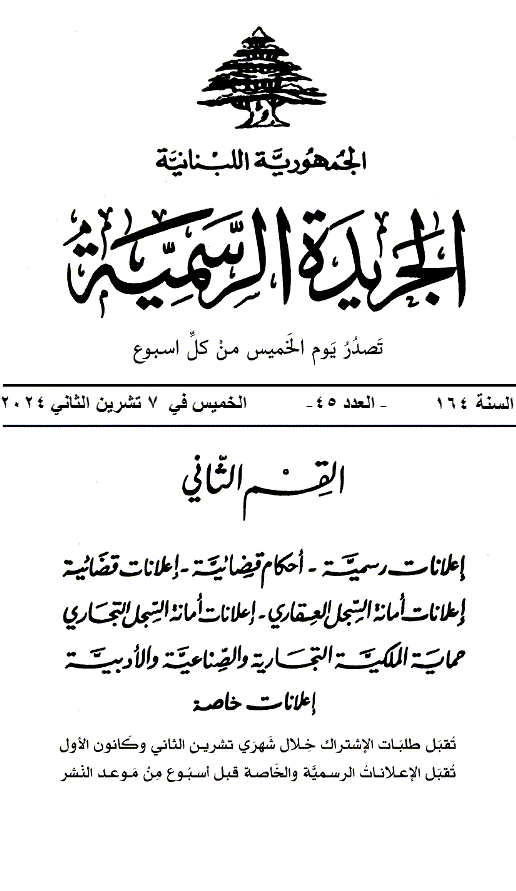 الجُمهُوريَّة اللبْنانيَّة
الجَريدَة الرسَّميَّة
تَصدُرُ يَوم الخَميس منْ كلِّ اسبوع
السنة ١٦٤ - العدد ٤٥ - الخميس في ٧ تشرين الثاني ٢٠٢٤
القِسْم الثّاني
إعلانات رسميَّة - أحكام قضائيَّة - إعلانات قضائية
إعلانات أمانة السِّجل العقاري - إعلانات أمانة السِّجل التجاري
حماية الملكيَّة التجارية والصِّناعيَّة والأدبيَّة
إعلانات خاصة
تُقبَل طلبَات الإشتراك خِلال شَهرَي تشرين الثاني وكَانون الأول
تُقبَل الإعلاناتُ الرسميَّة والخَاصة قبل أسبُوع مِنْ مَوعد النَشر